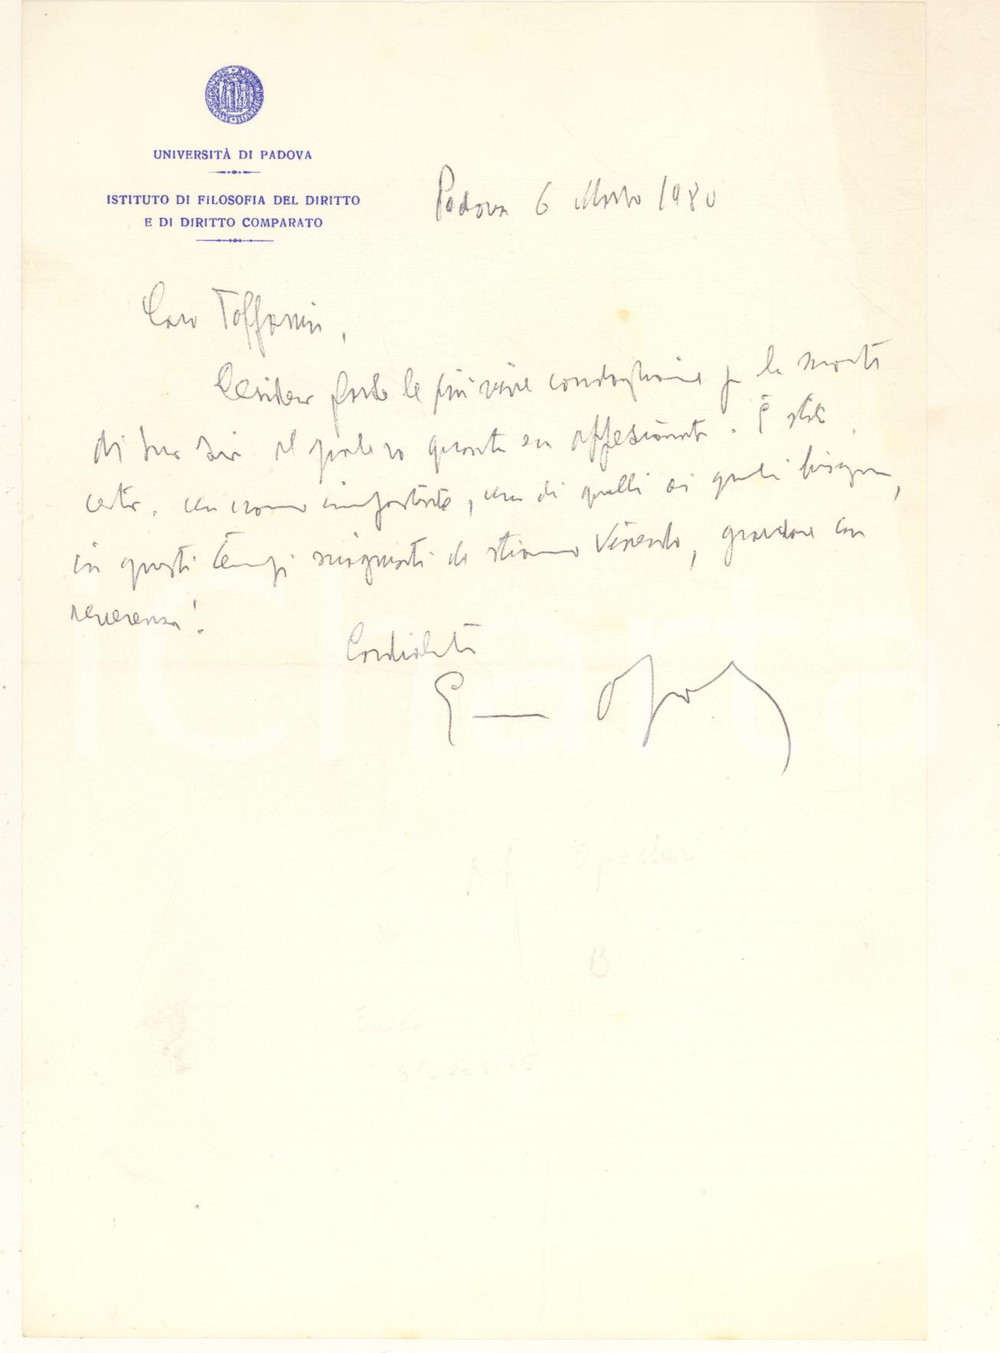 UNIVERSITÀ DI PADOVA
ISTITUTO DI FILOSOFIA DEL DIRITTO
E DI DIRITTO COMPARATO
Padova 6 Marzo 1980
Caro Toffanin,
le più vive condoglianze per la morte
di suo zio al quale ero quanto affezionato. È stato
certo un uomo importante, uno di quelli ai quali bisogna,
in questi tempi che stiamo vivendo, guardare con
reverenza!
Cordialità
Enrico Opocher
Opocher
B